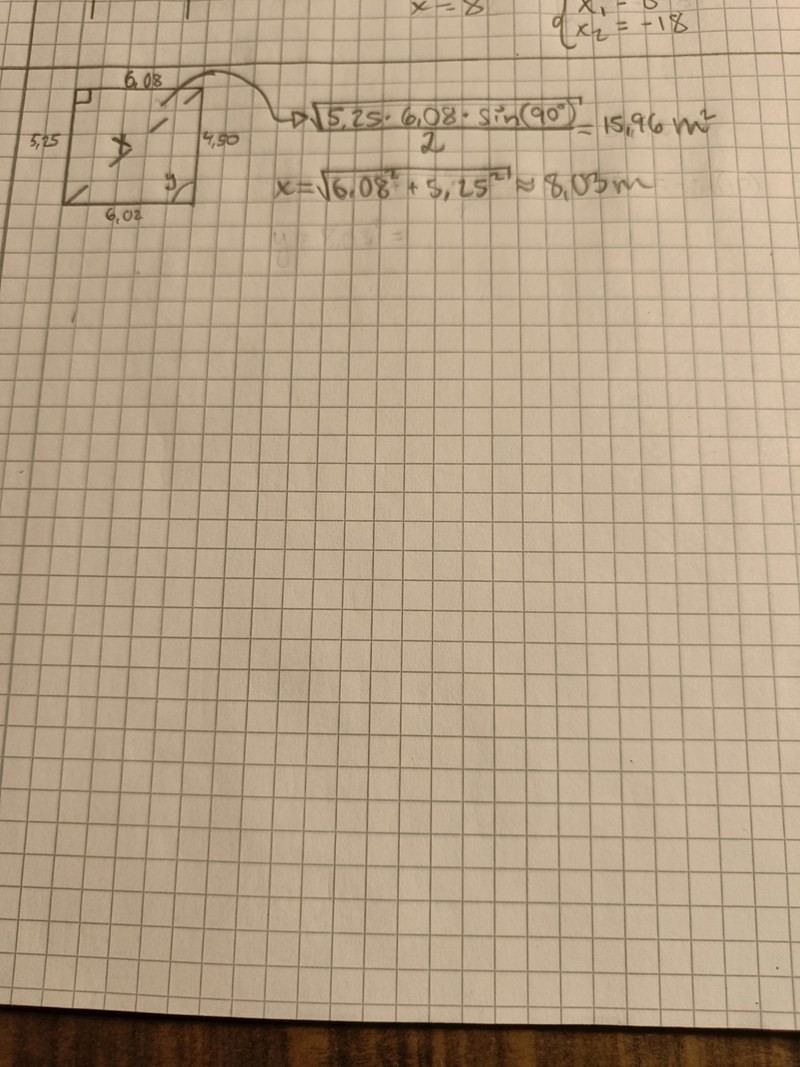 x = 8
x₂ = -18
6,08
5,25
x
4,90
y
6,02
√5,25 · 6,08 · sin(90°) / 2 = 15,96 m²
x = √6,08² + 5,25² ≈ 8,03 m